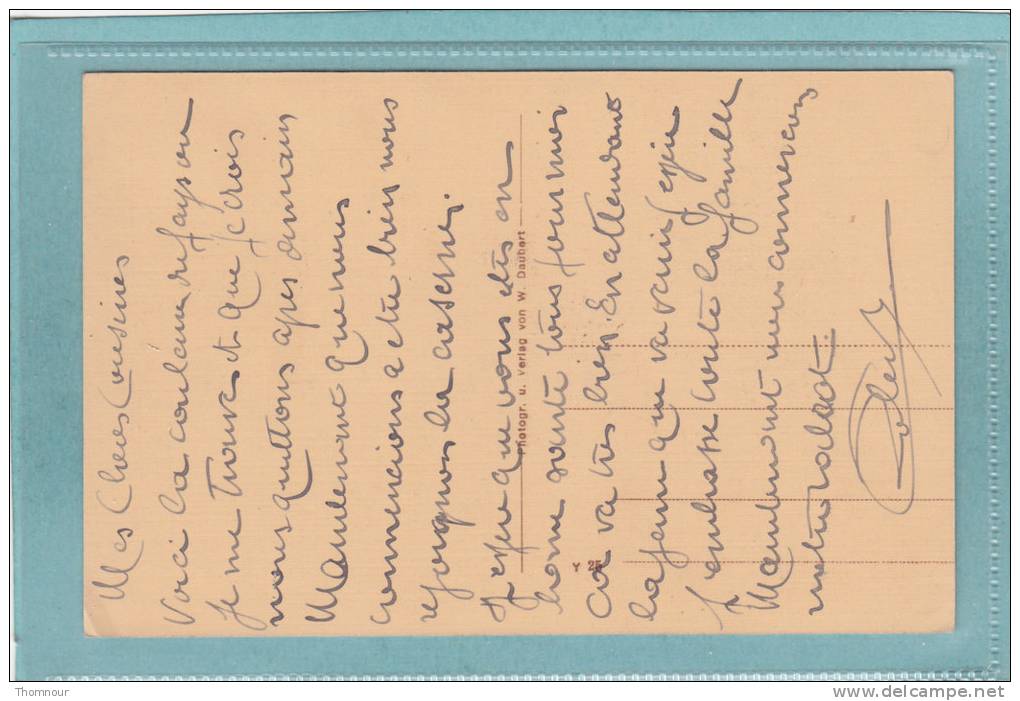 Mes Cheres Cousines
Voici la couleur du pays ou
je me trouve et que je crois
nous quittons apres demain
Maintenant que nous
commencions a etre bien nous
rejoignons la caserne.
J'espere que vous etes en
bonne santé tous pour moi
ca va très bien. En attendant
la que va venir j'espere
J'embrasse toute la famille
Maintenant nous conmencons
metre soldat.
Photogr. u. Verlag von W. Daubert
Y 25
Thomnour
www.delcampe.net